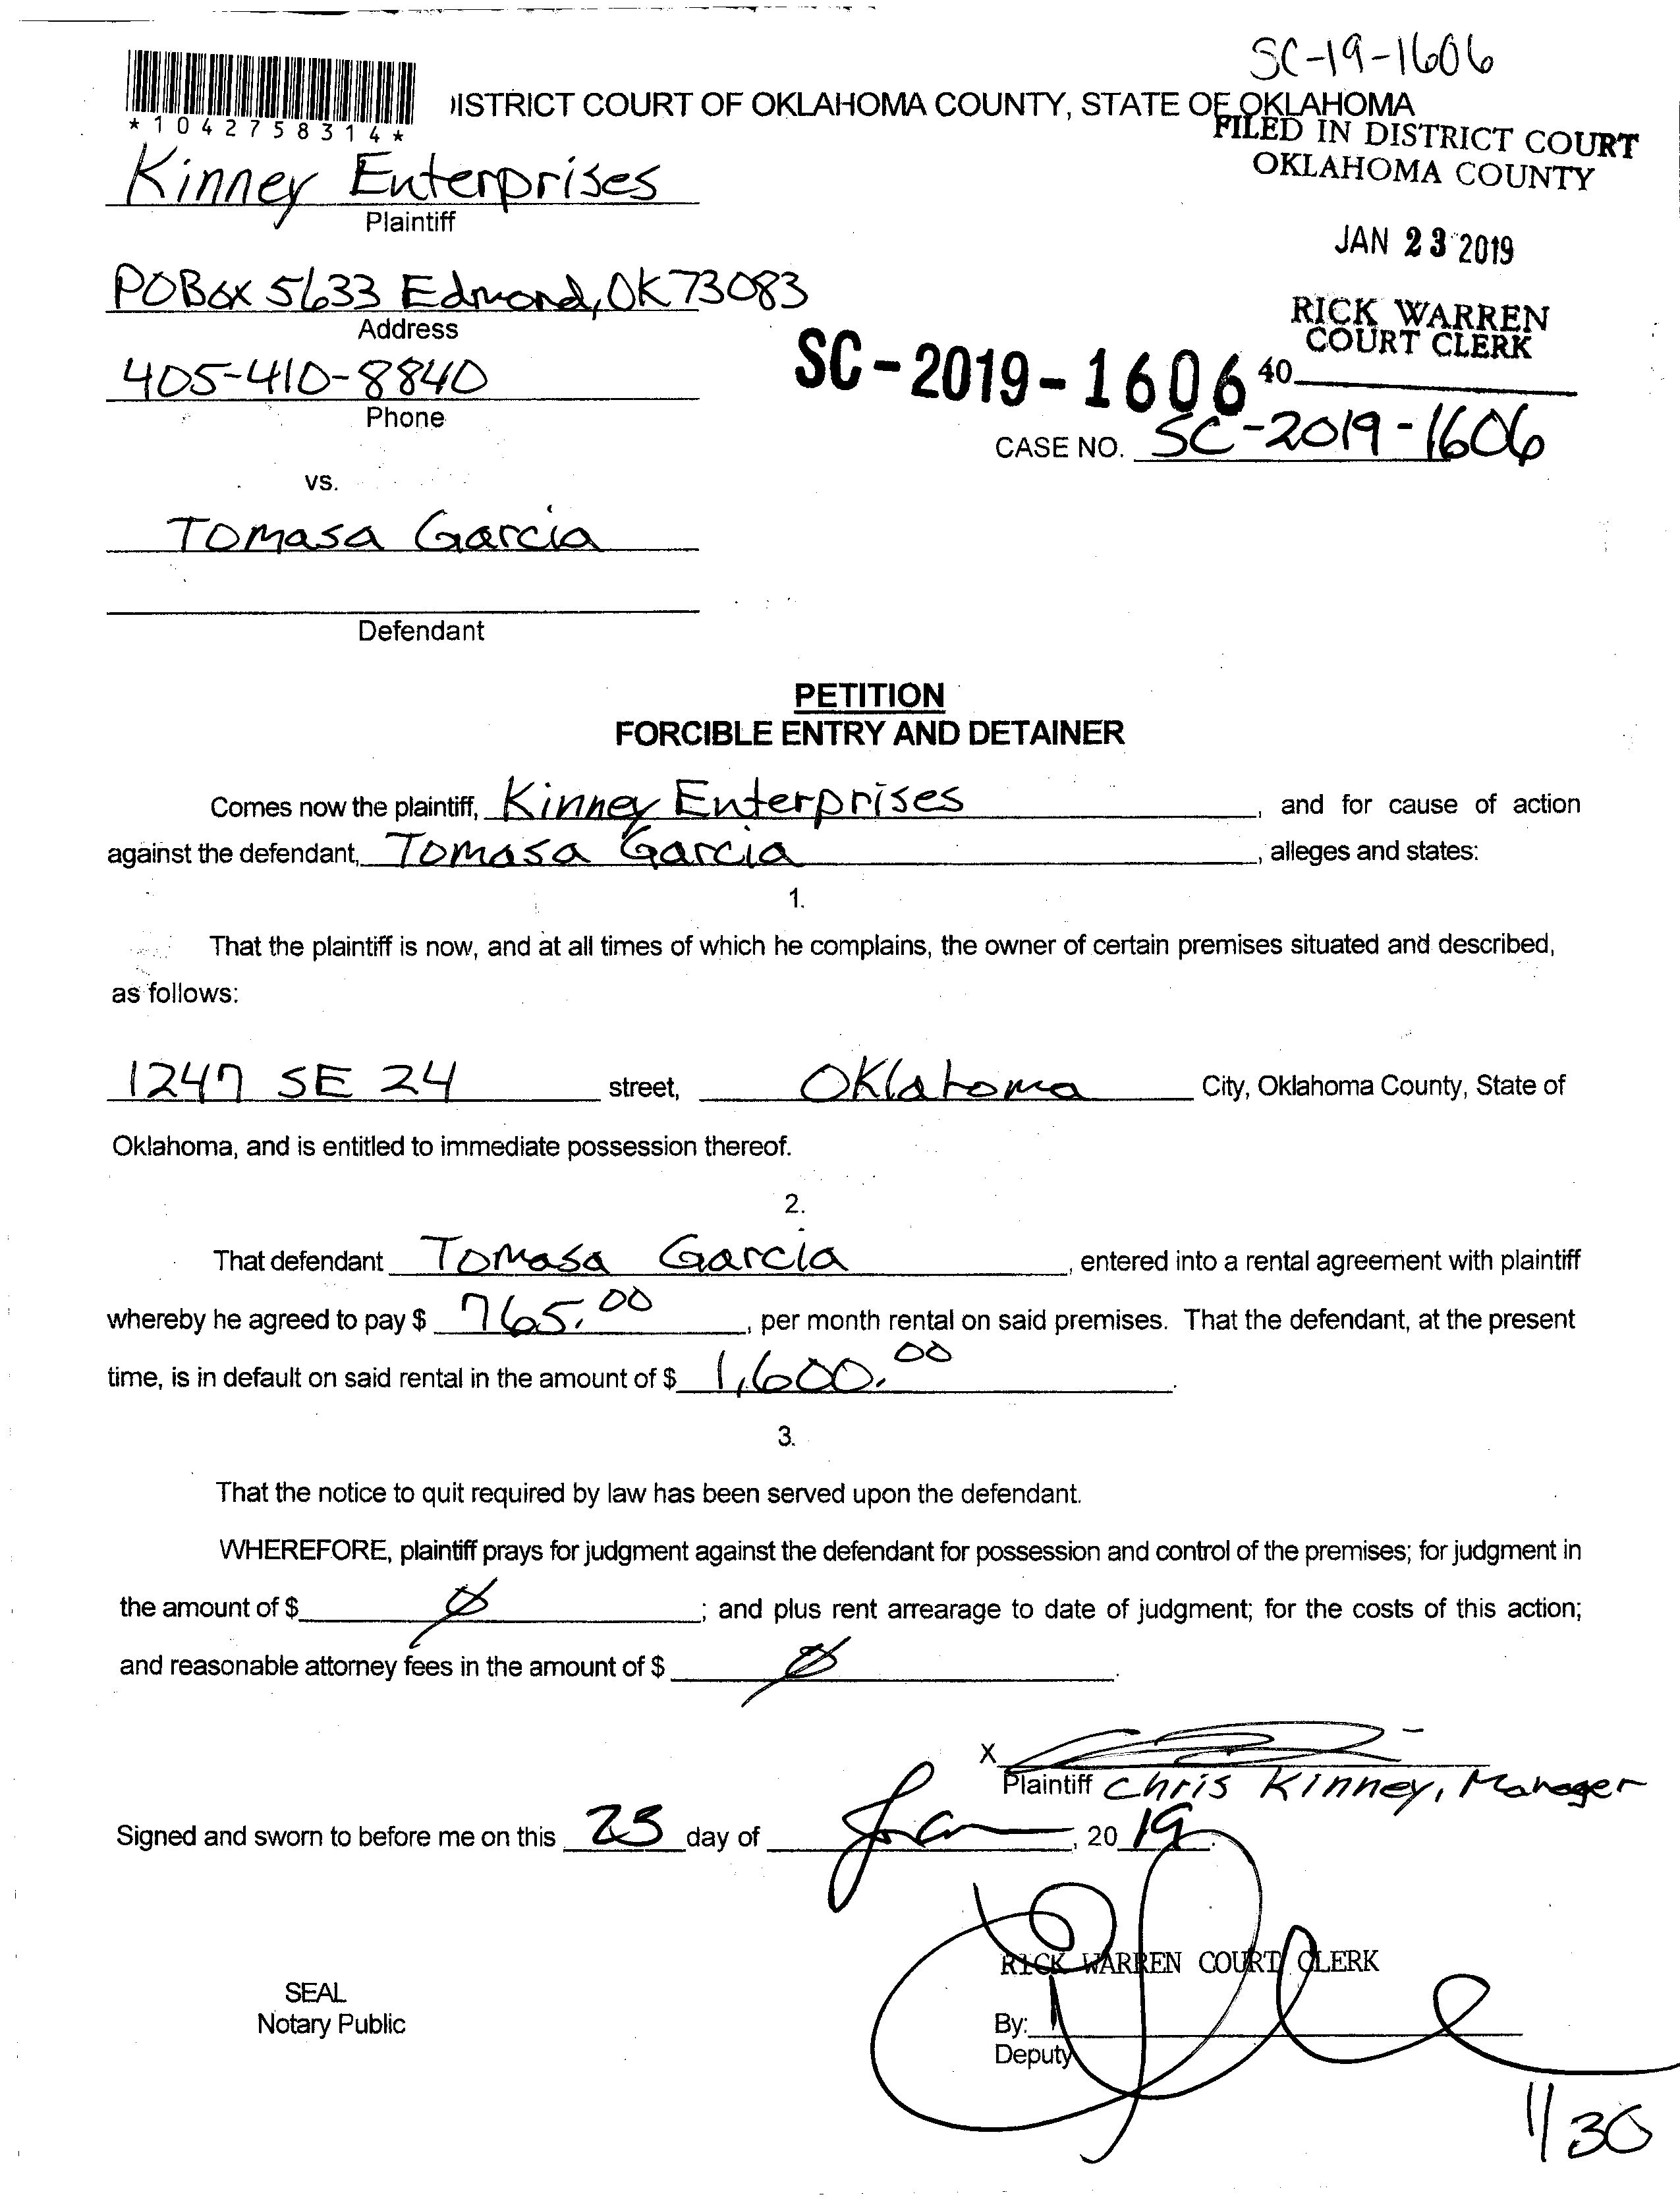 SC-19-1606
*1042758314*
DISTRICT COURT OF OKLAHOMA COUNTY, STATE OF OKLAHOMA
FILED IN DISTRICT COURT
OKLAHOMA COUNTY
Kinney Enterprises
Plaintiff
JAN 23 2019
POBox 5633 Edmond, OK 73083
Address
RICK WARREN
COURT CLERK
405-410-8840
Phone
SC-2019-1606
40
CASE NO. SC-2019-1606
vs.
Tomasa Garcia
Defendant
PETITION
FORCIBLE ENTRY AND DETAINER
Comes now the plaintiff, Kinney Enterprises, and for cause of action
against the defendant, Tomasa Garcia, alleges and states:
1.
That the plaintiff is now, and at all times of which he complains, the owner of certain premises situated and described,
as follows:
1247 SE 24 street, Oklahoma City, Oklahoma County, State of
Oklahoma, and is entitled to immediate possession thereof.
2.
That defendant Tomasa Garcia, entered into a rental agreement with plaintiff
whereby he agreed to pay $ 765.00, per month rental on said premises. That the defendant, at the present
time, is in default on said rental in the amount of $ 1,600.00.
3.
That the notice to quit required by law has been served upon the defendant.
WHEREFORE, plaintiff prays for judgment against the defendant for possession and control of the premises; for judgment in
the amount of $ Ø; and plus rent arrearage to date of judgment; for the costs of this action;
and reasonable attorney fees in the amount of $ Ø.
X
Plaintiff Chris Kinney, Manager
Signed and sworn to before me on this 23 day of Jan, 2019.
RICK WARREN COURT CLERK
SEAL
Notary Public
By:
Deputy
1/30